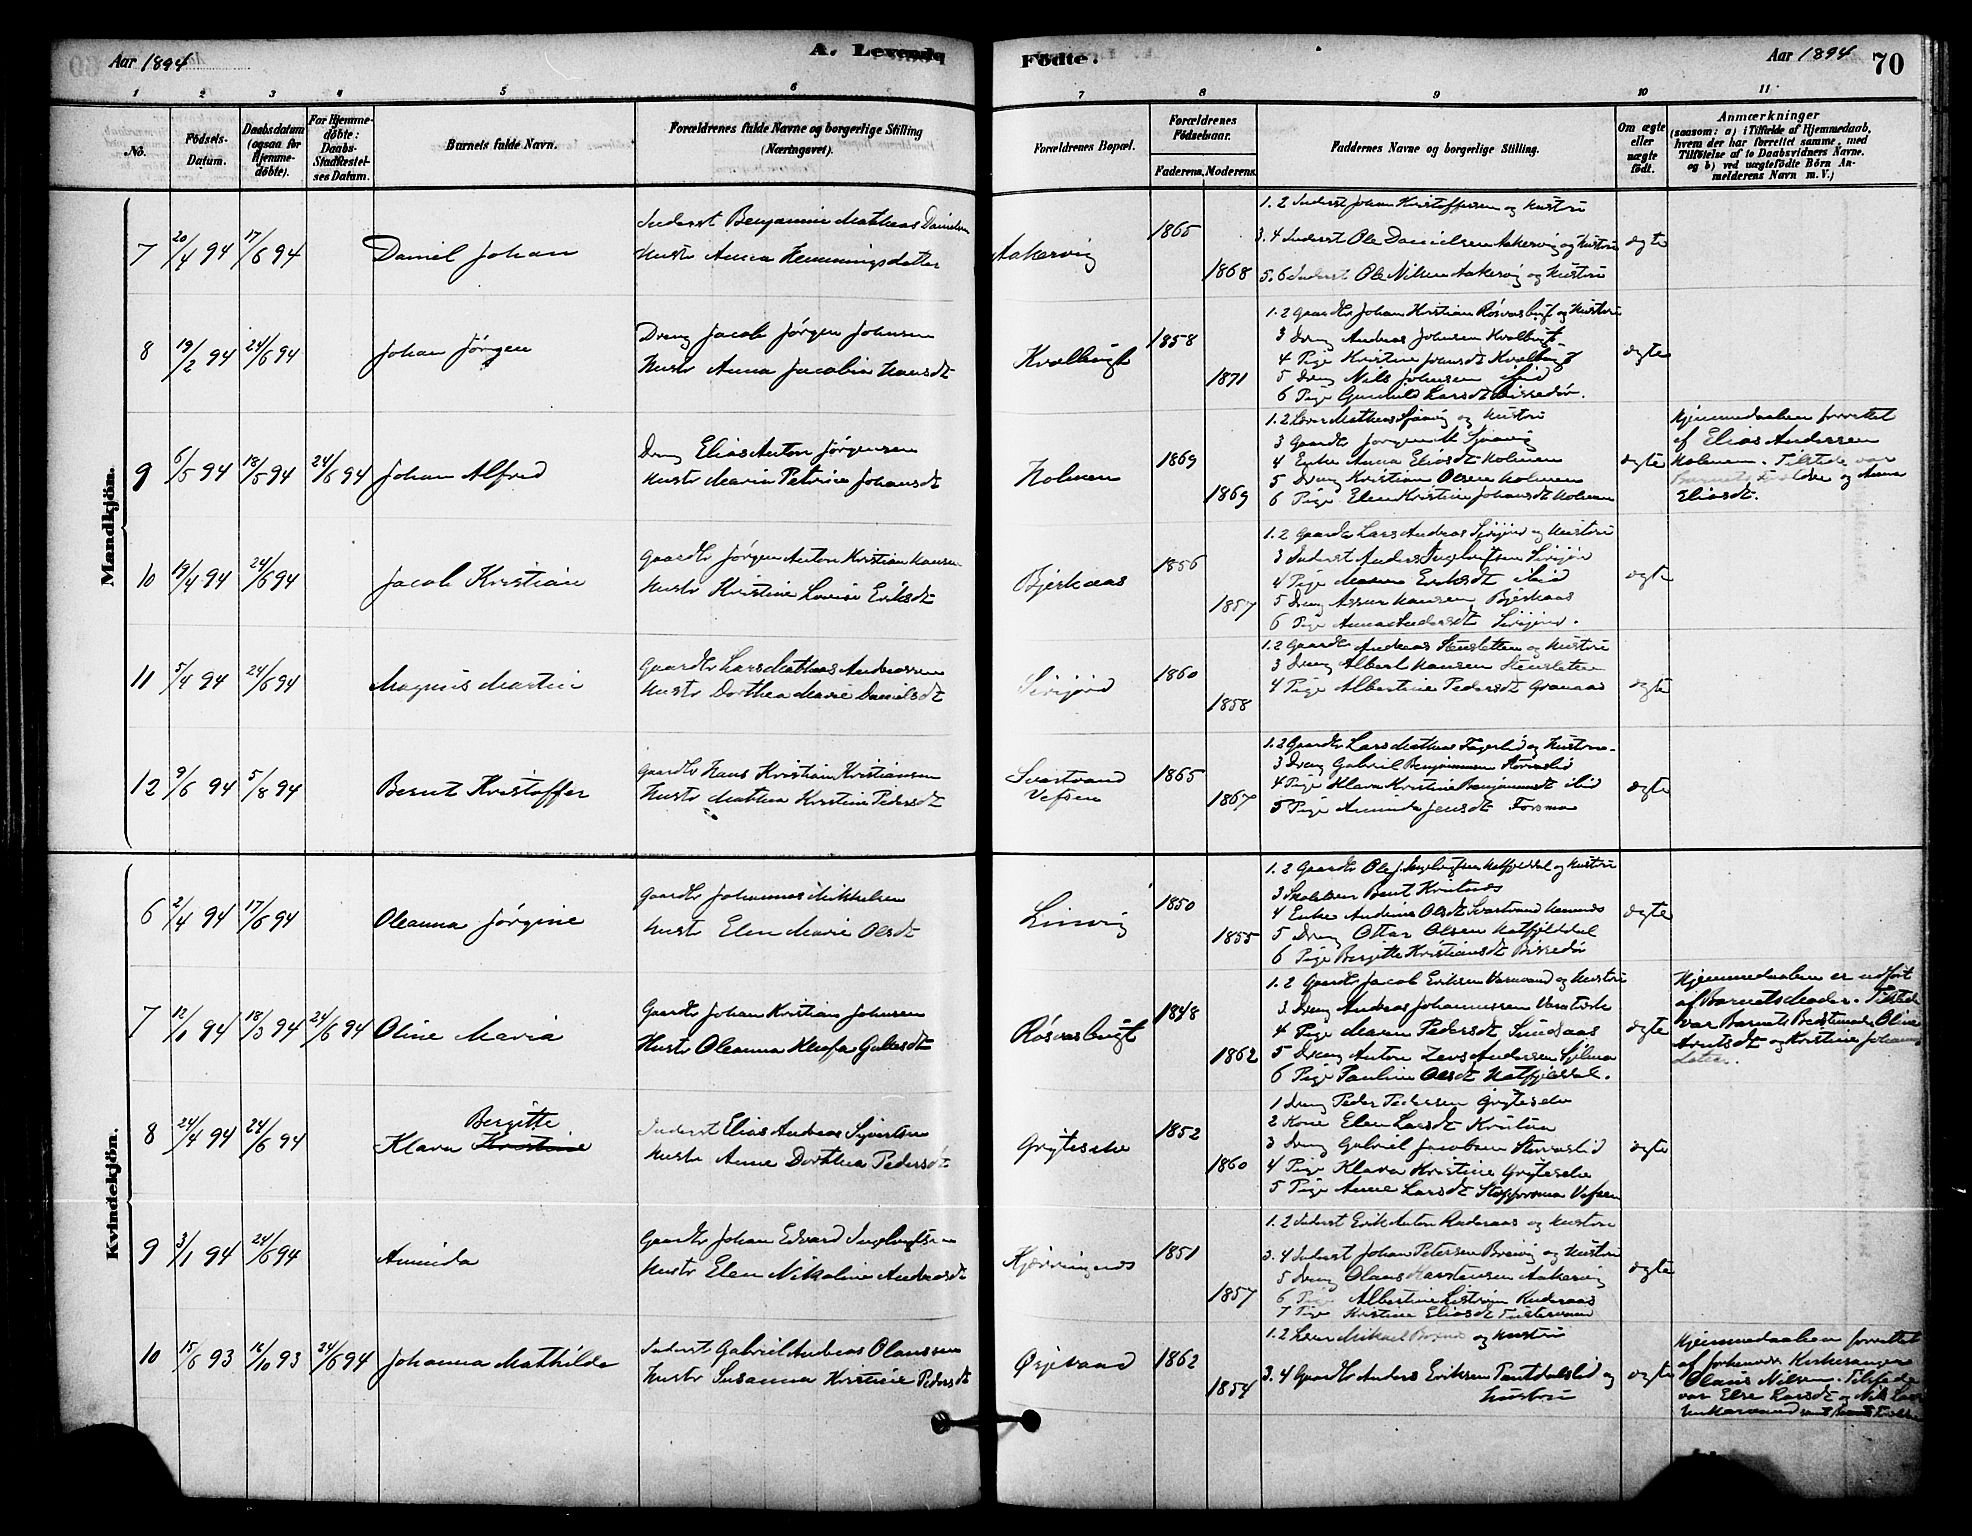 Aar 1894
A. Levende Fødte.
Aar 1894
70
1 2 3 4 5 6 7 8 9 10 11
No.
Fødsels-
Datum.
Daabsdatum
(ogsaa for
Hjemme-
døbte).
For Hjemme-
døbte:
Daabs-
Stadfæstel-
ses Datum.
Barnets fulde Navn.
Forældrenes fulde Navne og borgerlige Stilling
(Næringsvei).
Forældrenes Bopæl.
Forældrenes
Fødselsaar.
Faderens. Moderens.
Faddernes Navne og borgerlige Stilling.
Om ægte
eller
uægte
født.
Anmærkninger
(saasom: a) i Tilfælde af Hjemmedaab,
hvem der har forrettet samme, med
Tilføielse af to Daabsvidners Navne,
og b) ved uægtefødte Børn An-
melderens Navn m. V.)
Mandkjøn.
7 20/4 94 17/6 94
Daniel Johan
Inderst Benjamin Mathias Danielsen
Hustr Anna Hemmingsdatter
Aakervig
1865
1868
1.2 Inderst Johan Kristoffersen og Hustru
3.4 Inderst Ole Danielsen Aakervig og Hustru
5.6 Inderst Ole Nilsen Aakervig og Hustru
ægte
8 19/2 94 24/6 94
Johan Jørgen
Dreng Jacob Jørgen Johnsen
Hustr Anna Jacobia Hansdt
Kvalbugt
1858
1871
1.2 Gaardbr Johan Kristian Røsvasbugt og Hustru
3 Dreng Andreas Johnsen Kvalbugt
4 Pige Kristine Hansdt Kvalbugt
5 Dreng Nils Johnsen ibid
6 Pige Gunhild Larsdt Bissedør.
ægte
9 6/5 94 18/5 94 24/6 94
Johan Alfred
Dreng Elias Anton Jørgensen
Hustr Maria Petrine Johansdt
Holmen
1869
1869
1.2 Mathias og Hustru
3 Gaardbr Jørgen M.
4 Enke Anna Eliasdt Holmen
5 Dreng Kristian Olsen Holmen
6 Pige Elen Kristine Johansdt Holmen
ægte
Hjemmedaaben forrettet
af Elias Andersen
Holmen. Tilstede var
Barnets Forældre og Anna
Eliasdt.
10 19/4 94 24/6 94
Jacob Kristian
Gaardbr Jørgen Anton Kristian Hansen
Hustr Kristine Lovise Eriksdt
Bjerkaas
1856
1857
1.2 Gaardbr Lars Andreas Sirijord og Hustru
3 Inderst Anders Ingebrigtsen Sirijor
4 Pige Maren Eriksdt ibid
5 Dreng Hansen Bjerkaas
6 Pige Anna Andersdt Sirijord.
ægte
11 5/4 94 24/6 94
Magnus Martin
Gaardbr Lars Mathias Andreassen
Hustr Dorthea Marie Danielsdt
Sirijord
1860
1858
1.2 Gaardbr Andreas Stensletten og Hustru
3 Dreng Albert Hansen Stensletten
4 Pige Albertine Pedersdt Granaas
ægte
12 9/6 94 5/8 94
Bernt Kristoffer
Gaardbr Hans Kristian Kristiansen
Hustr Mathea Kristine Pedersdt
Svartvand
Vefsen
1865
1867
1.2 Gaardbr Lars Mathias Fagerlid og Hustru
3 Dreng Gabriel Benjaminsen Storvaslid
4 Pige Klara Kristine Benjaminsdt ibid
5 Pige Aminda Jensdt Forsmo
ægte
Kvindekjøn.
6 2/4 94 17/6 94
Oleanna Jørgine
Gaardbr Johannes Mikkelsen
Hustr Elen Marie Olsdt
Linvig
1850
1855
1.2 Gaardbr Ole J. Ingebrigtsen Hatfjelddal og Hustru
3 Skolelærer Bernt
4 Enke Andrine Olsdt Svartvand
5 Dreng Ottar Olsen Hatfjelddal
6 Pige Bergitte Kristiansdt Bissedør
ægte
7 12/1 94 18/3 94 24/6 94
Oline Maria
Gaardbr Johan Kristian Johnsen
Hustr Oleanna Kleofa Gabrdt
Røsvasbugt
1848
1862
1.2 Gaardbr Jacob Eriksen Varnvand og Hustru
3 Dreng Andreas Johannessen
4 Pige Maren Pedersdt Sundsaas
5 Dreng Anton Andersen
6 Pige Pauline Olsdt Hatfjelddal.
ægte
Hjemmedaaben er udført
af Barnets Moder. Tilstede
var Barnets Bedstemoder Oline
Arntsdt og Kristine Johanns
datter.
8 24/4 94 24/6 94
Bergitte
Klara Kristine
Inderst Elias Andreas Sivertsen
Hustr Anne Dorthea Pedersdt
Gryteselv
1852
1860
1 Dreng Peder Pedersen Gryteselv
2 Kone Elen Larsdt
3 Dreng Gabriel Jacobsen Storvaslid
4 Pige Klara Kristine Gryteselv
5 Pige Anne Larsdt Stopforsmoen Vefsen
ægte
9 3/1 94 24/6 94
Aminda
Gaardbr Johan Edvard Ingebrigtsen
Hustr Elen Nikoline Andreasdt
1851
1857
1.2 Inderst Erik Anton og Hustru
3.4 Inderst Johan Petersen Breivig og Hustru
5 Dreng Olaus Aakervig
6 Pige Albertine
7 Pige Kristine Eliasdt
ægte
10 15/6 93 16/10 93 24/6 94
Johanna Mathilde
Inderst Gabriel Andreas Olaussen
Hustr Susanna Kristine Pedersdt
1862
1854
1.2 Mikael og Hustru
3.4 Gaardbr Anders Eriksen Pantdalslid og
Hustru
ægte
Hjemmedaaben forrettet
af forhenv. Kirkesanger
Olaus Nilsen. Tilstede
var Else Larsdt og Nils